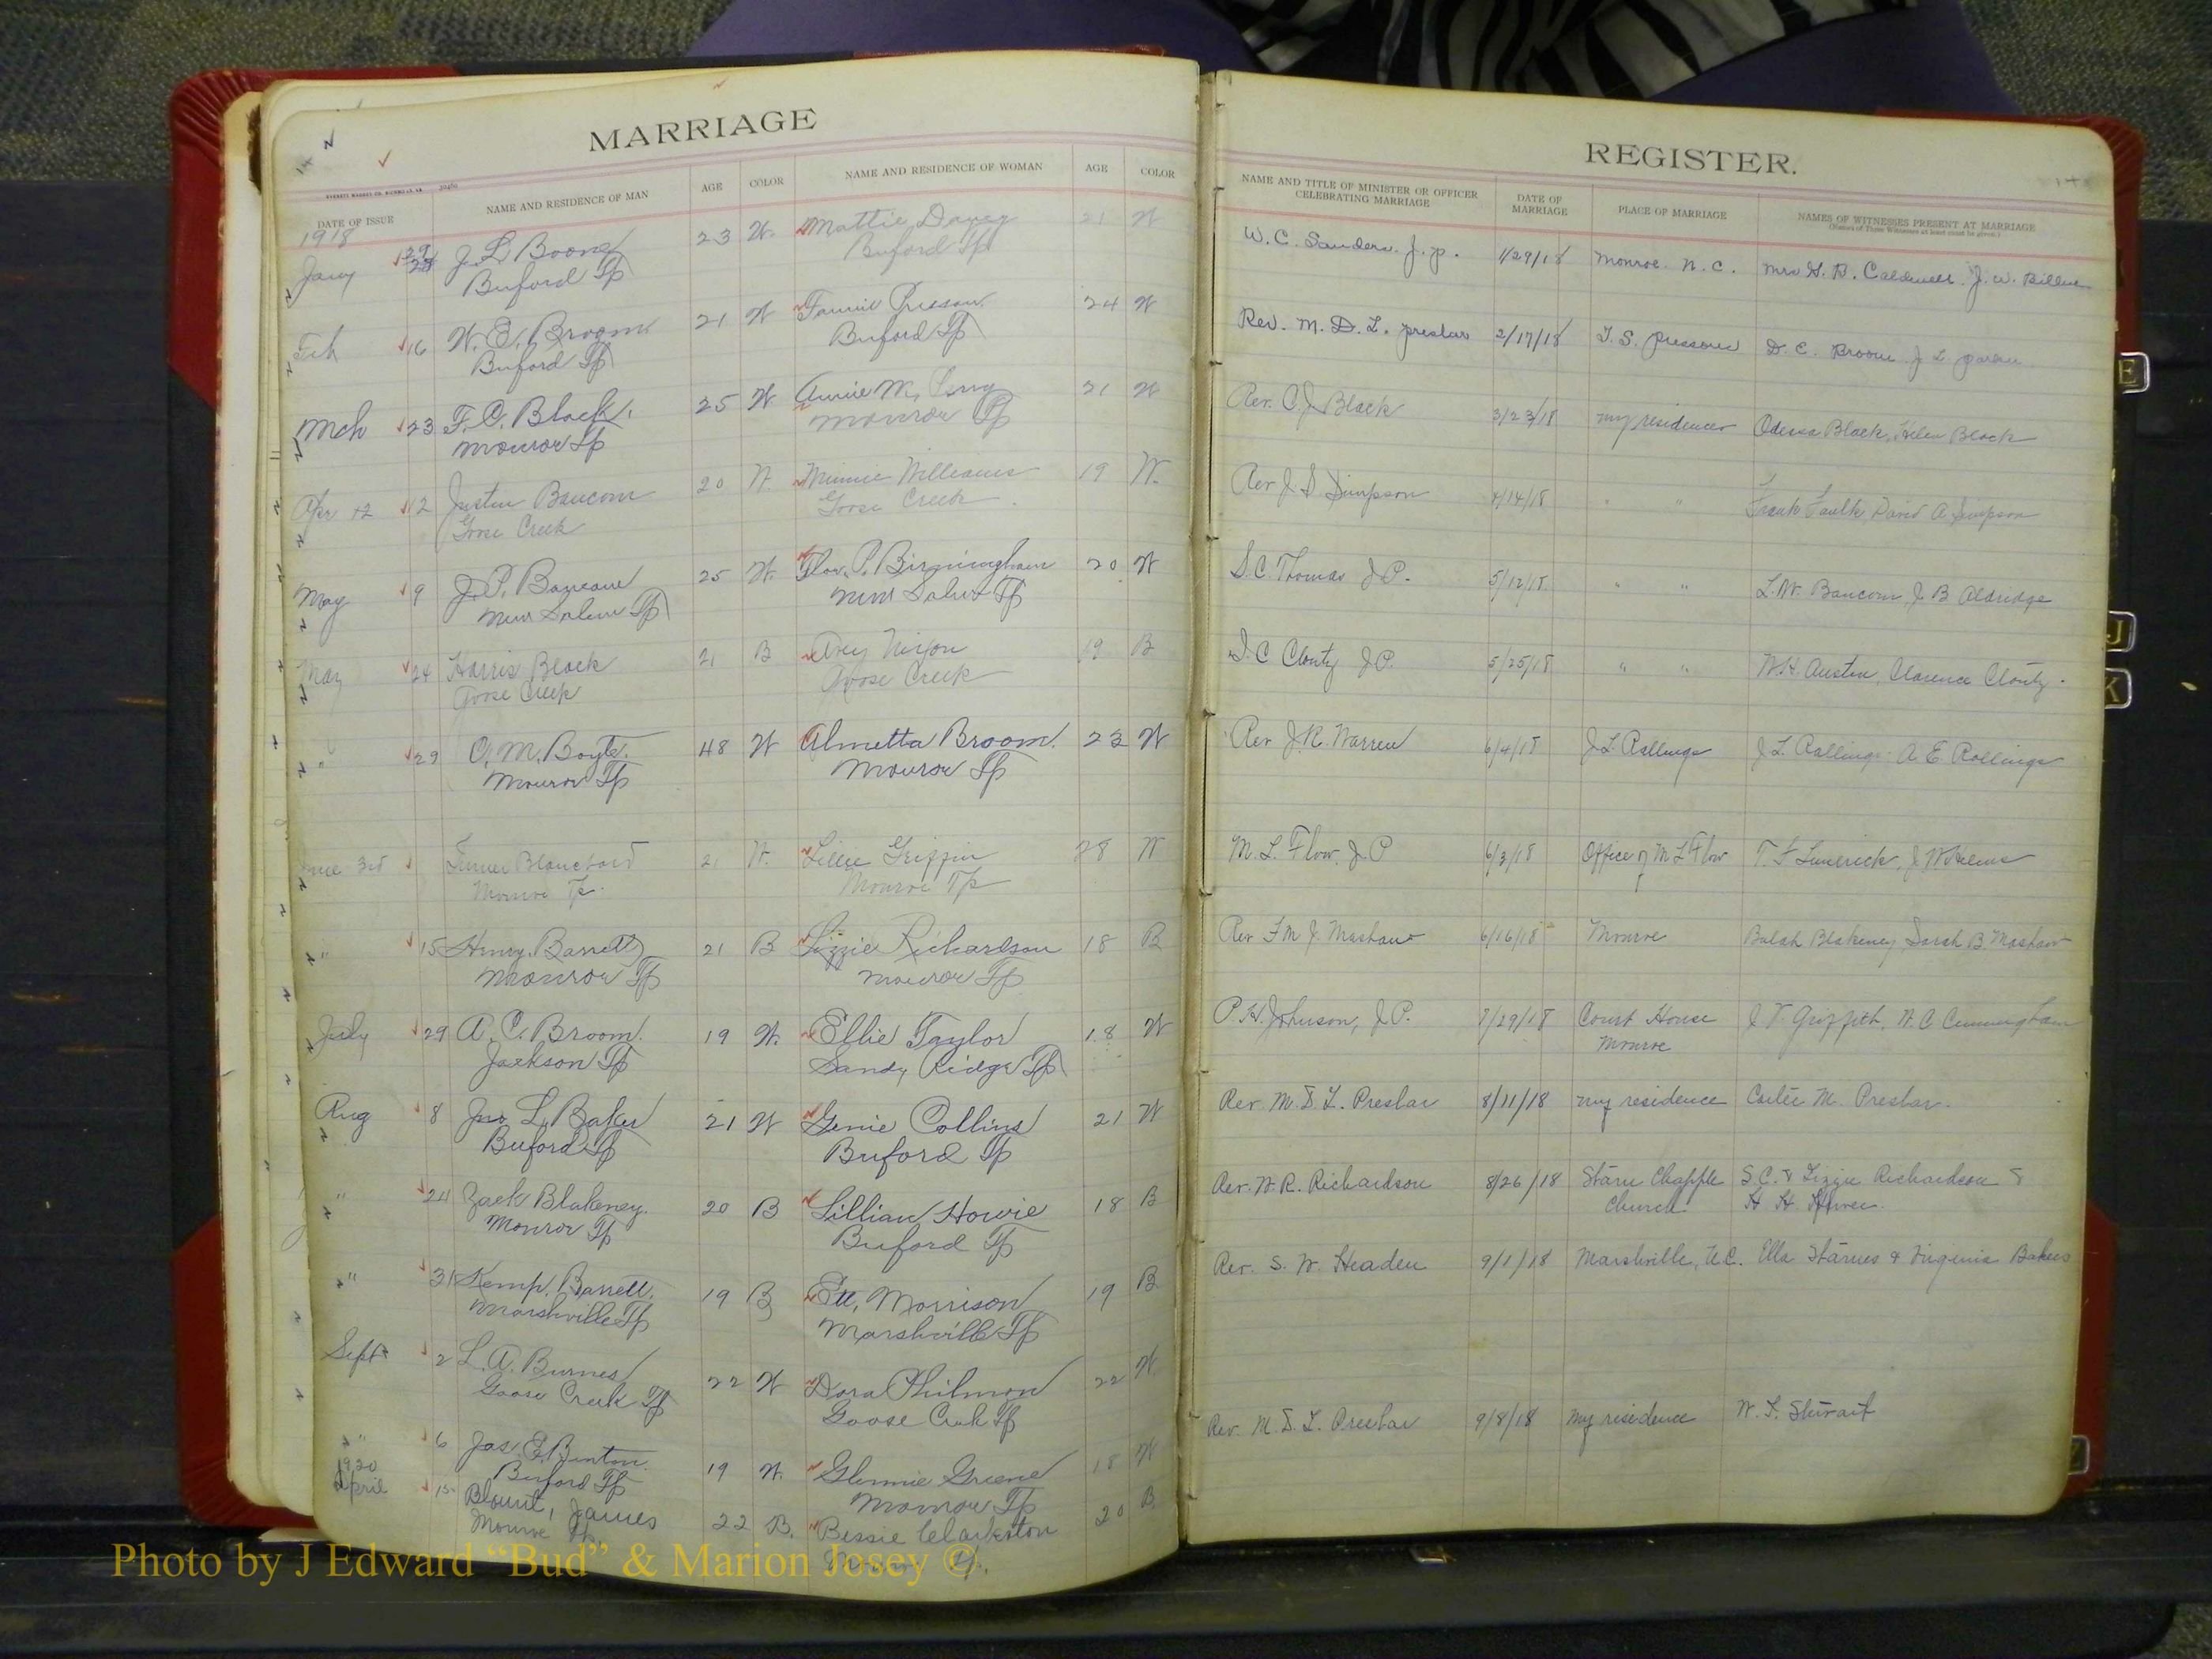 MARRIAGE
EVERETT WADDEY CO. RICHMOND, VA. 20460
DATE OF ISSUE NAME AND RESIDENCE OF MAN AGE COLOR NAME AND RESIDENCE OF WOMAN AGE COLOR
1918
Jany 29 J. L. Boone 23 W. Mattie 21 W
Buford Tp Buford Tp
Feb 16 W. E. Broom 21 W Fannie Presson 24 W
Buford Tp Buford Tp
Mch 23 F. C. Black 25 W Annie M. 21 W
Monroe Tp Monroe Tp
Apr 12 12 Justin Baucom 20 W. Minnie Williams 19 W.
Goose Creek Goose Creek
May 9 J. P. 25 W. P. Birmingham 20 W
New Salem Tp New Salem Tp
May 24 Harris Black 21 B Nixon 19 B
Goose Creek Goose Creek
" 29 O. M. Boyte. 48 W Almetta Broom. 22 W
Monroe Tp Monroe Tp
June 3rd Turner Blanchard 21 W. Lillie Griffin 28 W
Monroe Tp. Monroe Tp
" 15 Henry Barrett 21 B Lizzie Richardson 18 B
Monroe Tp Monroe Tp
July 29 A. C. Broom. 19 W. Ellie Taylor 18 W
Jackson Tp Sandy Ridge Tp
Aug 8 Jno. L. Baker 21 W Genie Collins 21 W
Buford Tp Buford Tp
" 24 Zack Blakeney. 20 B Lillian Howie 18 B
Monroe Tp Buford Tp
" 31 Kemp. Barrett. 19 B Ett, Morrison 19 B
Marshville Tp Marshville Tp
Sept 2 L. A. Burnes 22 W Dora Philmon 22 W
Goose Creek Tp Goose Creek Tp
" 6 Jas. E. Benton 19 W. Glennie Greene 18 W
Buford Tp Monroe Tp
1920
April 15 Blount, James 22 B. Bessie Clarkston 20 B
Monroe Tp. Monroe Tp.
REGISTER.
NAME AND TITLE OF MINISTER OR OFFICER CELEBRATING MARRIAGE DATE OF MARRIAGE PLACE OF MARRIAGE NAMES OF WITNESSES PRESENT AT MARRIAGE
(Names of Three Witnesses at least must be given.)
W. C. Sanders. J. P. 1/29/18 Monroe. N. C. Mrs H. B. Caldwell. J. W.
Rev. M. D. L. Preslar 2/17/18 T. S. Pressons D. C. Broom J. L.
Rev. C. J. Black 3/23/18 my residence Odessa Black, Helen Black
Rev J. S. Simpson 4/14/18 " " Frank Faulk, David A Simpson
S. C. Thomas J. P. 5/12/18 " " L. W. Baucom, J. B Aldridge
I. C Clontz J P. 5/25/18 " " W. H. Austin, Clarence Clontz.
Rev J. R. Warren 6/4/18 J L Rollings J L. Rollings A E Rollings
M. L. Flow. J P 6/3/18 Office of M L Flow T. F Limerick, J W Helms
Rev F M J. Mashaw 6/16/18 Monroe Bulah Blakeney, Sarah B. Mashaw
P. H. Johnson, J. P. 7/29/18 Court House J V. Griffith, W. C Cunningham
Monroe
Rev. M. D. L. Preslar 8/11/18 my residence M. Preslar.
Rev. W. R. Richardson 8/26/18 Starn Chapple S. C. & Lizzie Richardson &
Church H. H.
Rev. S. W. Headen 9/1/18 Marshville, N.C. Ella Starnes & Virginia
Rev. M. D. L. Preslar 9/8/18 my residence W. L. Stewart
Photo by J Edward “Bud” & Marion Josey ©
E
J
K